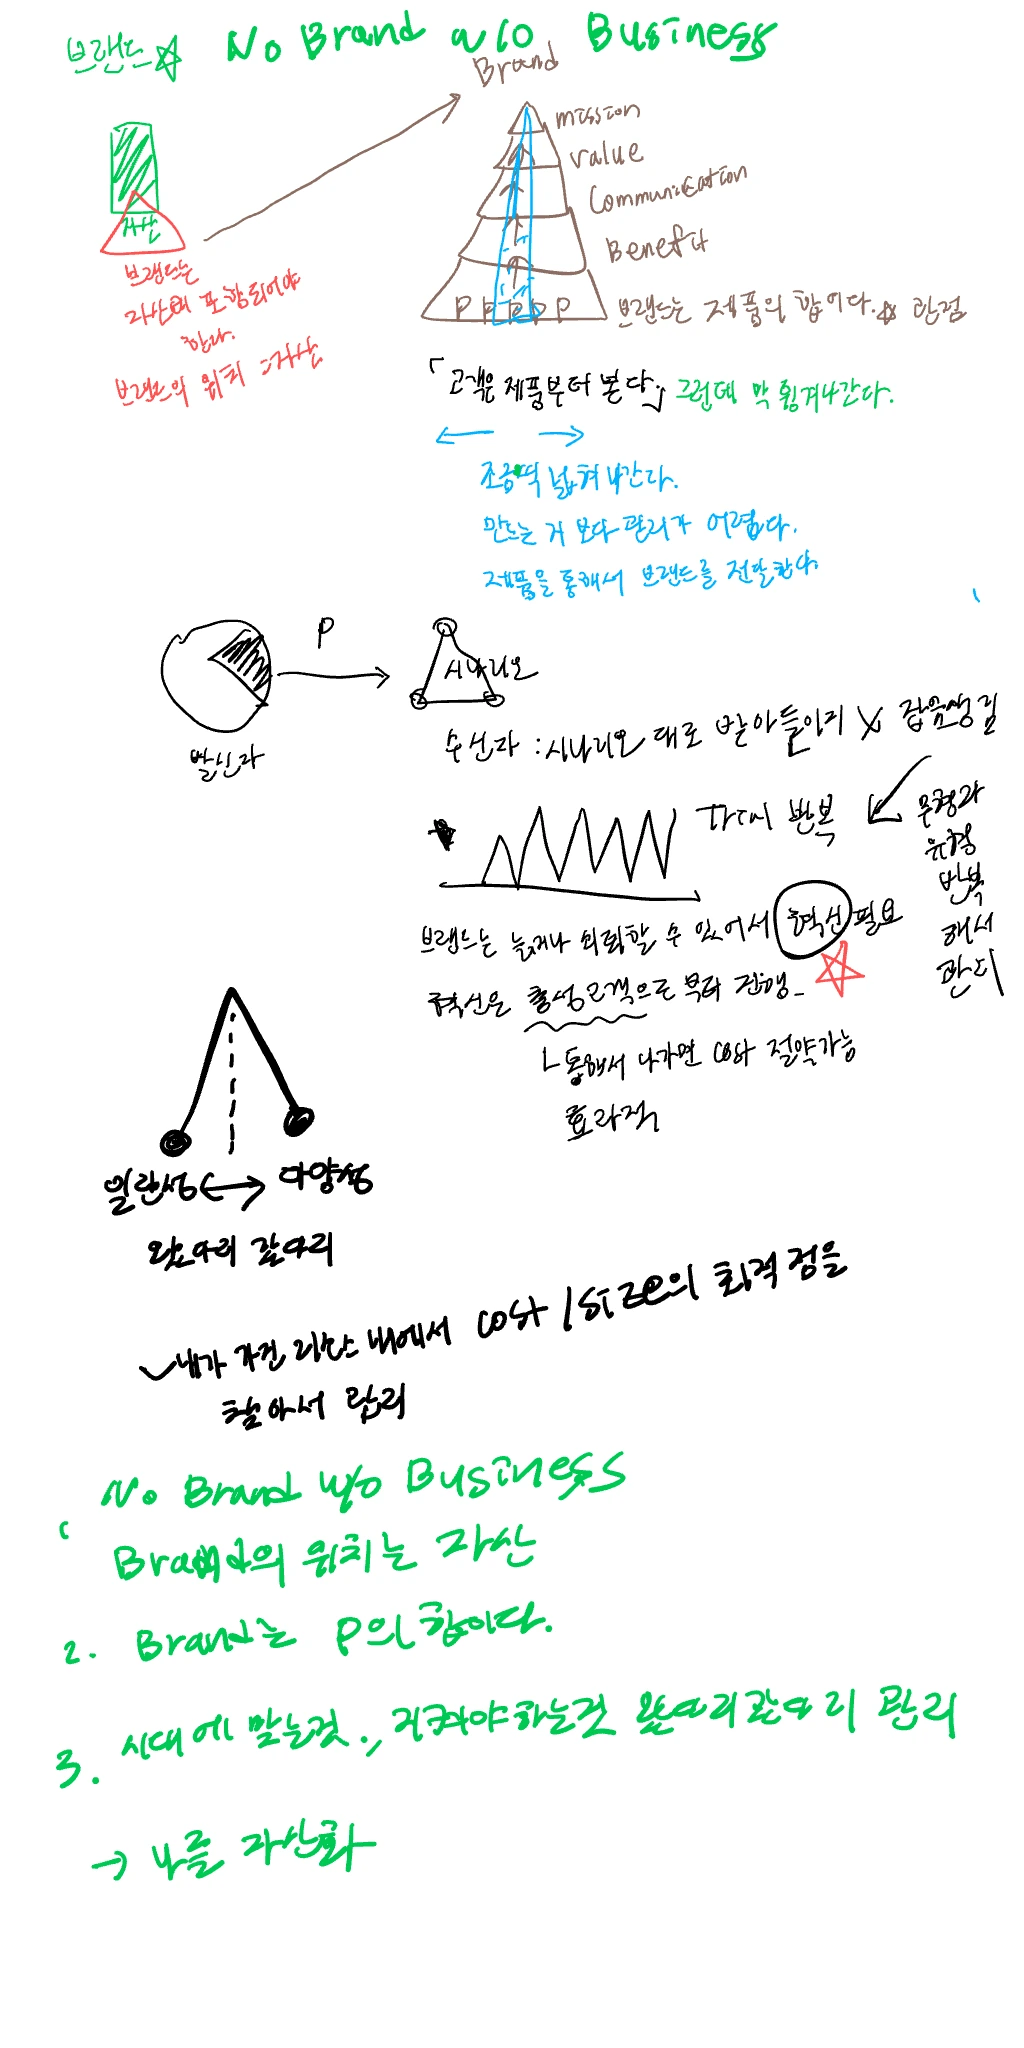 브랜드 No Brand w/o Business
Brand
mission
value
Communication
Benefit
P P P P P
브랜드는 제품의 합이다. 관점
자산
브랜드는
자산에 포함되어야
한다.
브랜드의 위치 = 자산
「고객은 제품부터 본다」 그런데 막 튕겨나간다.
조금씩 넓혀나간다.
만드는 거 보다 관리가 어렵다.
제품을 통해서 브랜드를 전달한다.
P
시나리오
발신자
수신자 : 시나리오 대로 받아들이지 X 잡음생김
다시 반복
무형과
유형
반복
해서
관리
브랜드는 늙거나 쇠퇴할 수 있어서 혁신 필요
혁신은 충성고객으로 부터 진행
통해서 나가면 cost 절약가능
효과적
일관성 다양성
왔다리 갔다리
내가 가진 리소스 내에서 cost / size의 최적점을
찾아서 관리
No Brand w/o Business
1 Brand의 위치는 자산
2. Brand는 P의 합이다.
3. 시대에 맞는것, 지켜야하는것 왔다리갔다리 관리
→ 나를 자산화